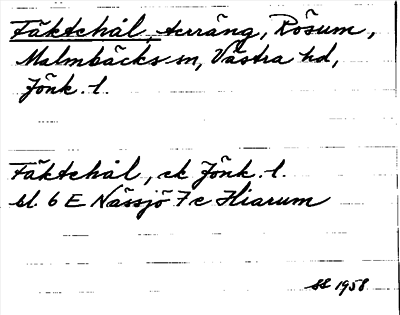 Fäktehål, terräng, Rösum,
Malmbäcks sn, Västra hd,
Jönk. l.
Fäktehål, ek Jönk. l.
bl. 6 E Nässjö 7 c Hiarum
SS 1958